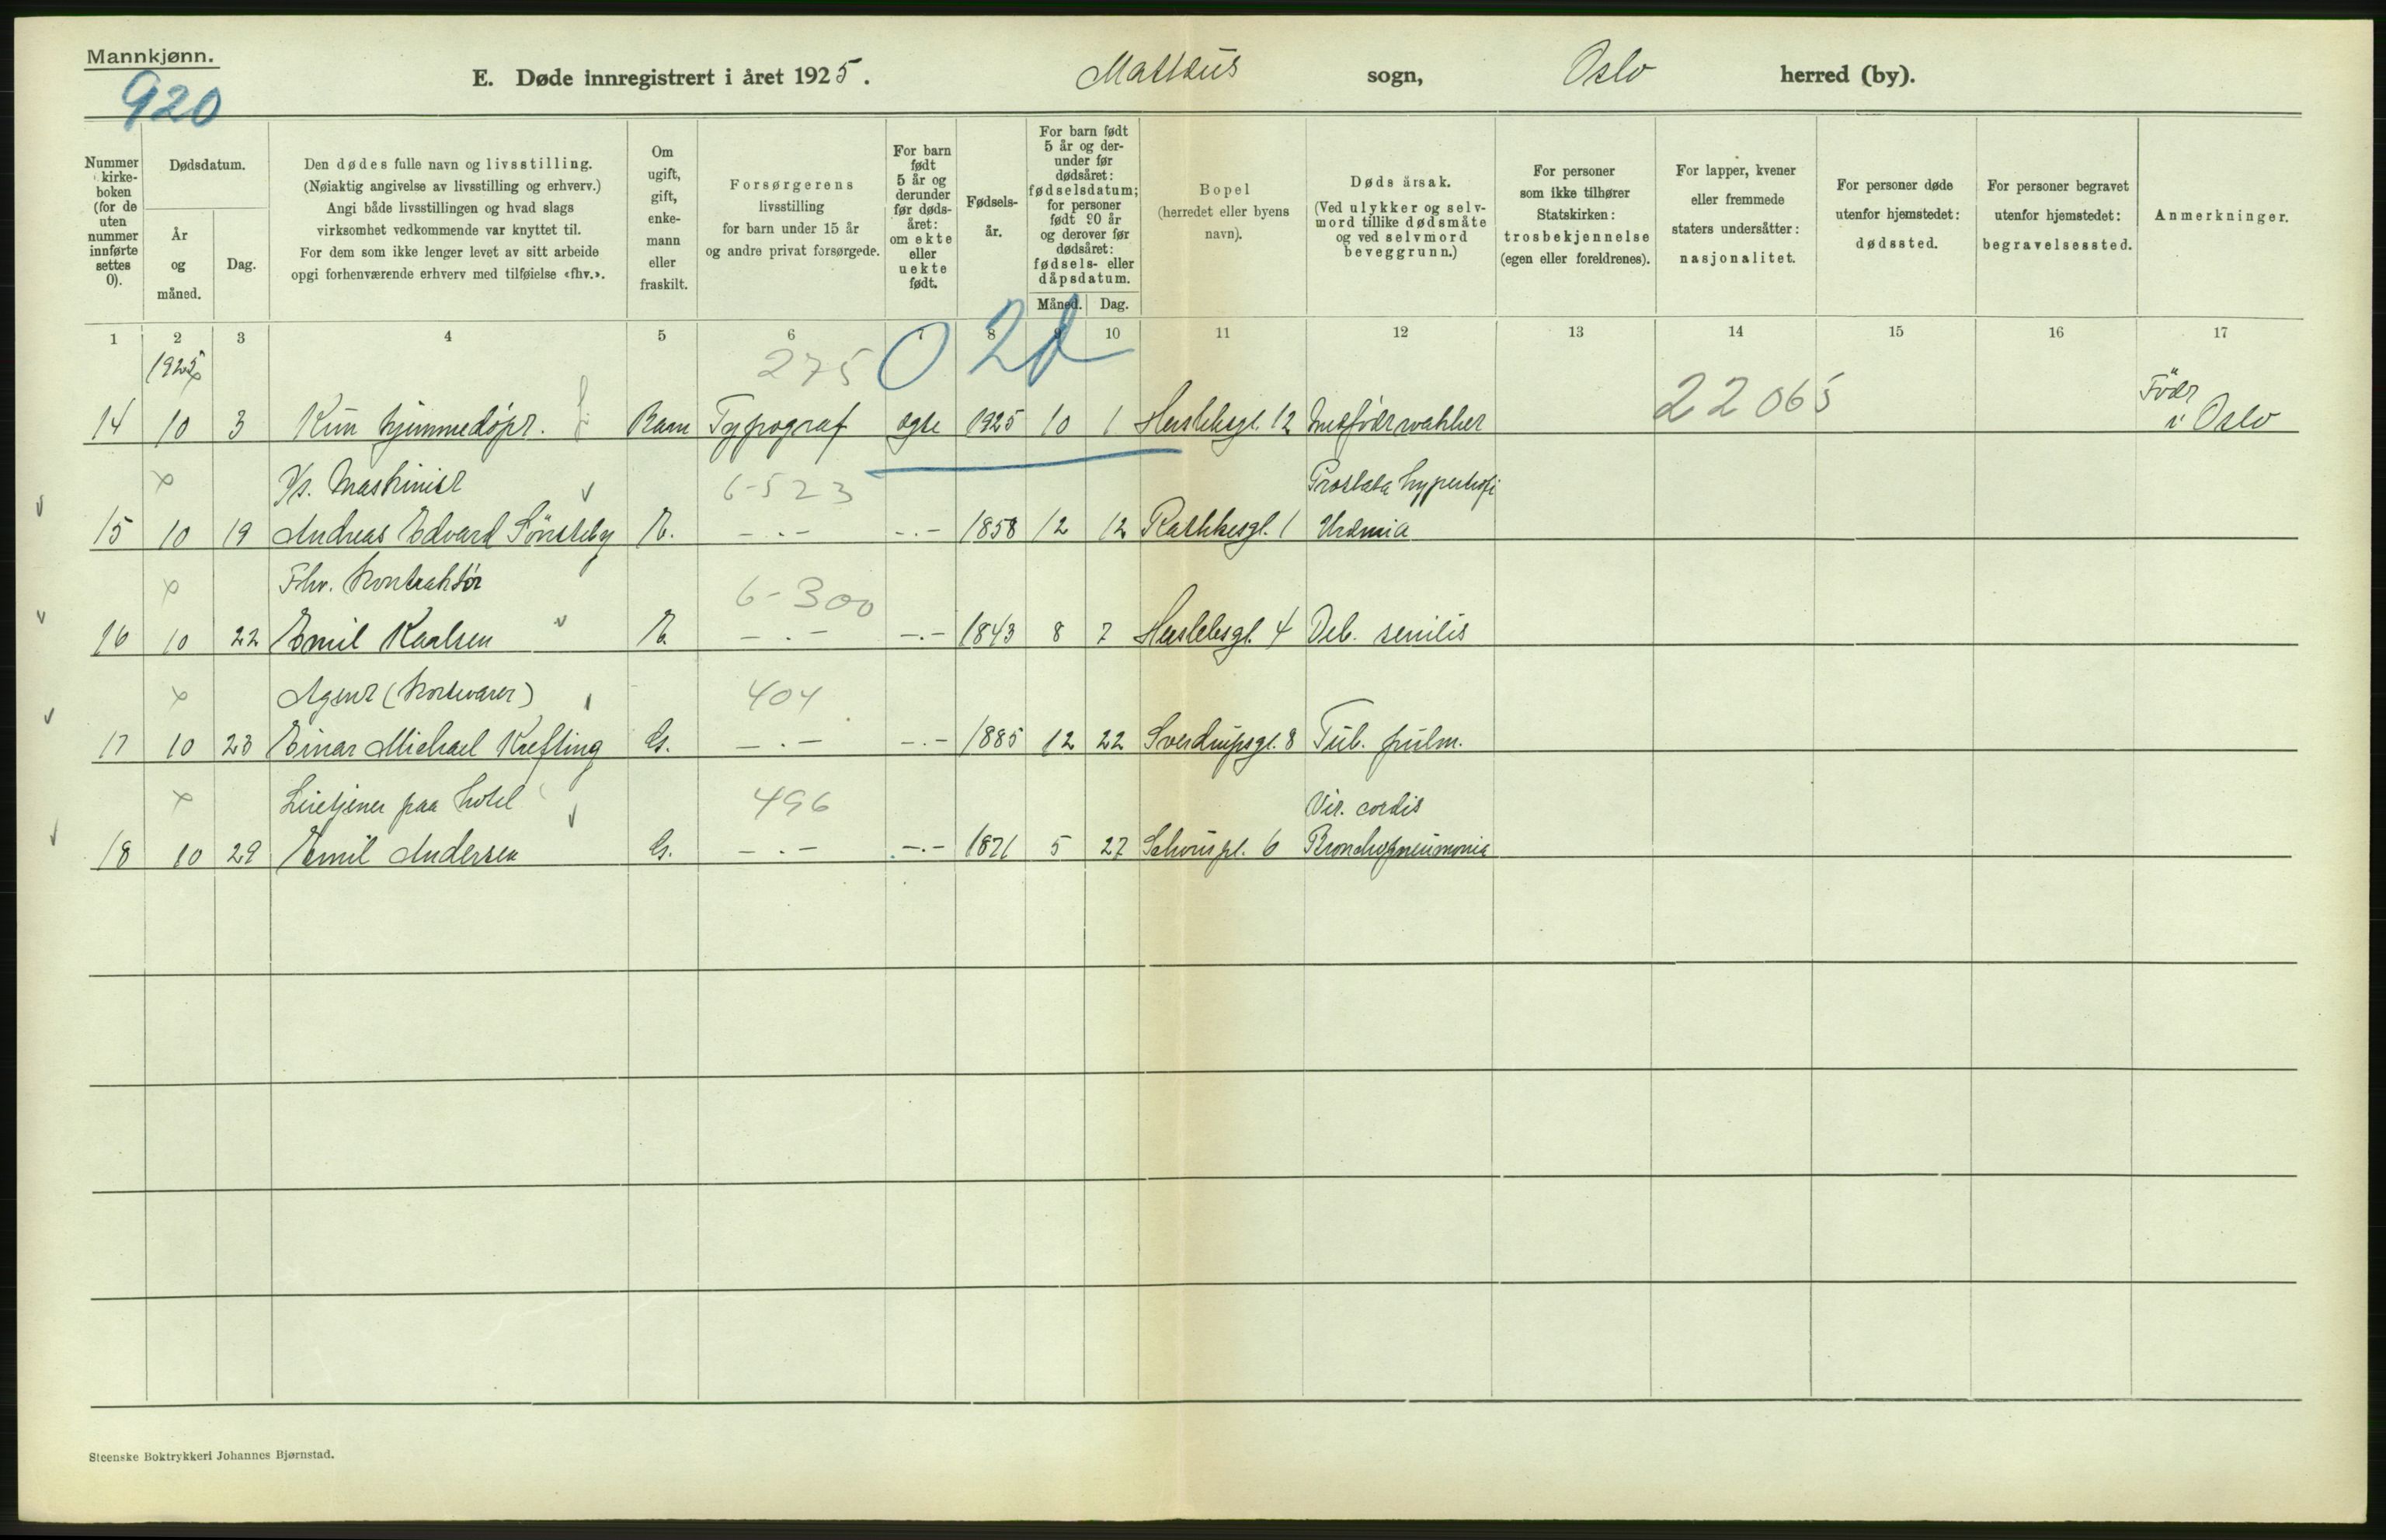 Mannkjønn.
920
E. Døde innregistrert i året 1925. Mattæus sogn, Oslo herred (by).
Nummer i kirke-boken (for de uten nummer innførte settes 0).
Dødsdatum.
År og måned.
Dag.
Den dødes fulle navn og livsstilling.
(Nøiaktig angivelse av livsstilling og erhverv.)
Angi både livsstillingen og hvad slags
virksomhet vedkommende var knyttet til.
For dem som ikke lenger levet av sitt arbeide
opgi forhenværende erhverv med tilføielse «fhv.».
Om ugift, gift, enke-mann eller fraskilt.
Forsørgerens
livsstilling
for barn under 15 år
og andre privat forsørgede.
For barn født 5 år og derunder før døds-året: om ekte eller uekte født.
Fødsels-år.
For barn født 5 år og der-under før dødsåret: fødselsdatum; for personer født 90 år og derover før dødsåret: fødsels- eller dåpsdatum.
Måned. Dag.
Bopel
(herredet eller byens
navn).
Døds årsak.
(Ved ulykker og selv-
mord tillike dødsmåte
og ved selvmord
beveggrunn.)
For personer
som ikke tilhører
Statskirken:
trosbekjennelse
(egen eller foreldrenes).
For lapper, kvener
eller fremmede
staters undersåtter:
nasjonalitet.
For personer døde
utenfor hjemstedet:
dødssted.
For personer begravet
utenfor hjemstedet:
begravelsessted.
Anmerkninger.
1 2 3 4 5 6 7 8 9 10 11 12 13 14 15 16 17
1925 275 0 2d
22065 Född
14 10 3 Kun hjemmedøpt. Barn Typograf ægte 1925 10 1 Herslebsgt. 12 Medfödt svakhet i Oslo
x Maskinist 6-523 Prostata hypertrofi
15 10 19 Andreas Edvard Sönsteby E. -.- -.- 1858 12 12 Rathkesgt. 1 Urämia
x Fhv. Kontraktör 6-300
16 10 22 Emil Karlsen E. -.- -.- 1843 8 7 Herslebsgt. 4 Deb. senilis
x Agent (Kortevarer) 404
17 10 23 Einar Michael Krefting G. -.- -.- 1885 12 22 Sverdrupsgt. 8 Tub. pulm.
x paa hotel 496 Vit. cordis
18 10 29 Emil Andersen G. -.- -.- 1871 5 27 Schouspl. 6 Bronchopneumonia
Steenske Boktrykkeri Johannes Bjørnstad.